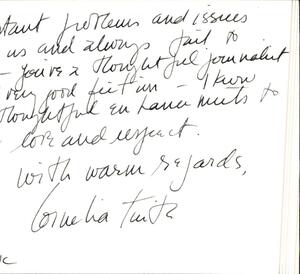 problems and issues
us and always fail to
you're a thoughtful journalist
very good fiction – I know
thoughtful enhancements to
love and respect.
With warm regards,
Cornelia